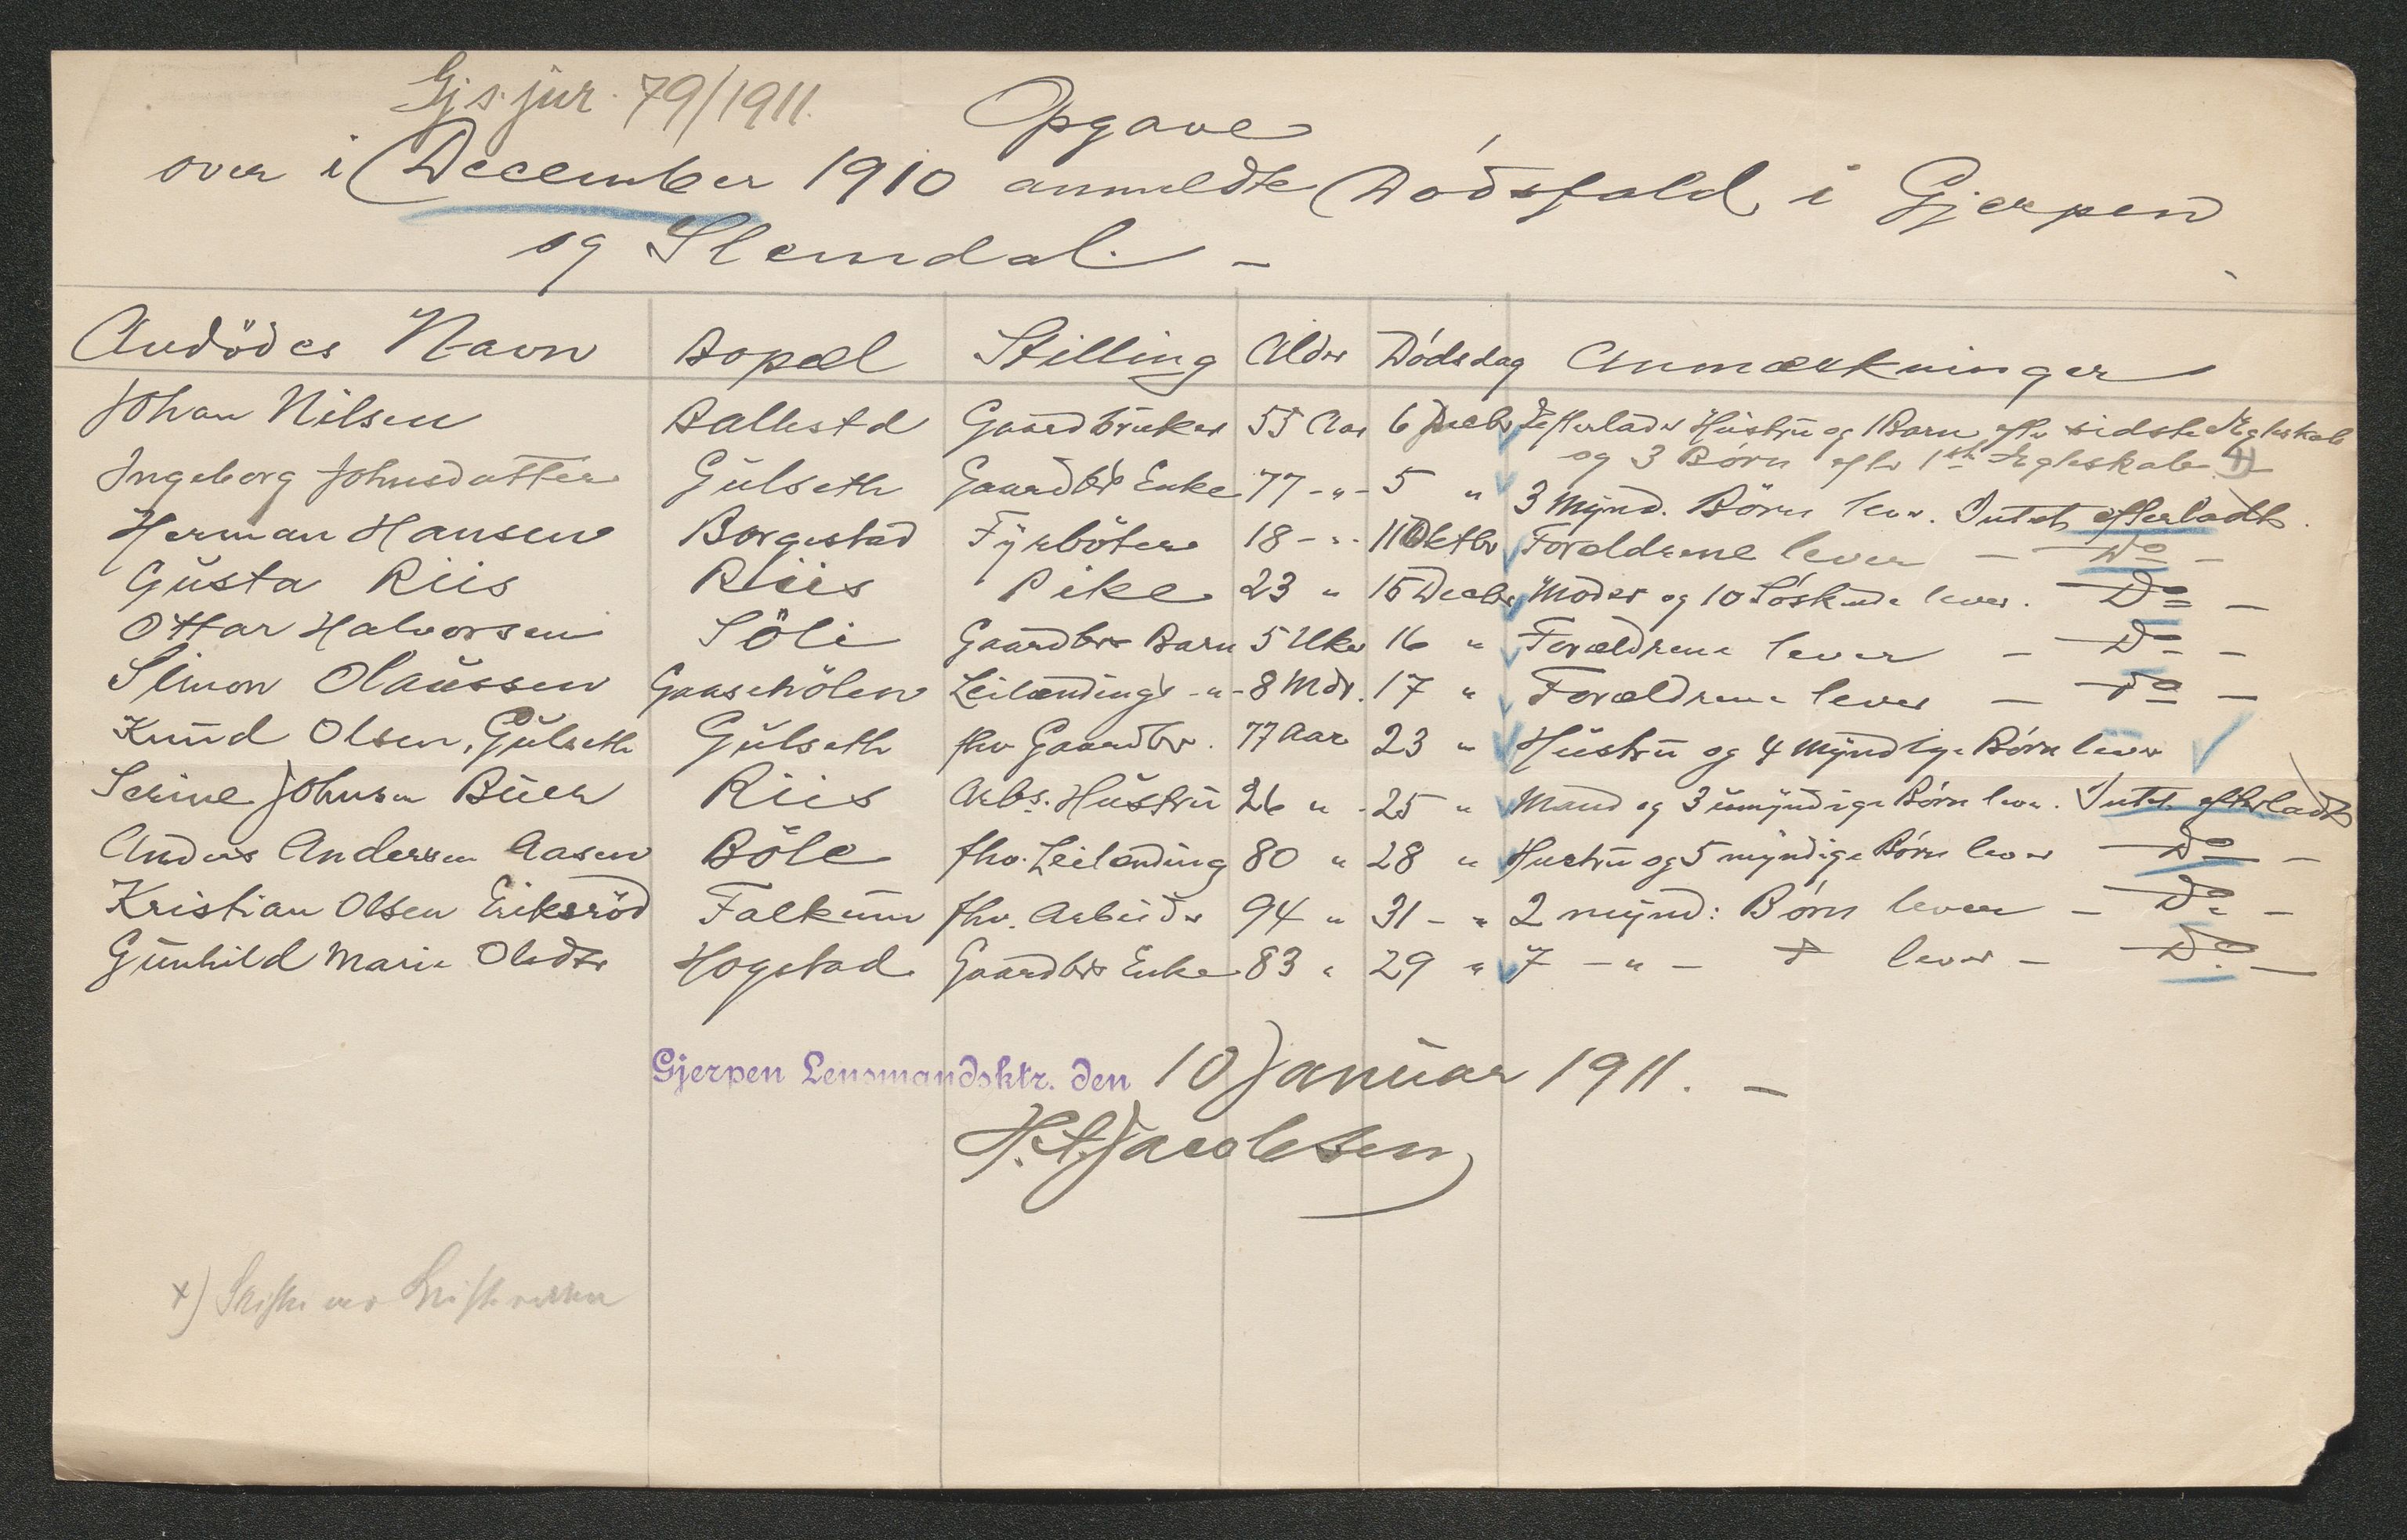 Gjs. jur. 79/1911.
Opgave
over i December 1910 anmeldte Dødsfald i Gjerpen
og Slemdal. –
Avdödes Navn Bopæl Stilling Alder Dödsdag Anmærkninger
Johan Nilsen Ballestad Gaardbruker 55 Aar 6 Decbr Efterlader Hustru og 1 Barn efter sidste Ægteskab
og 3 Børn efter 1ste Ægteskab +)
Ingeborg Johnsdatter Gulseth Gaardbrs Enke 77 -„- 5 „ 3 Mynd. Børn lever. Intet efterladt.
Herman Hansen Borgestad Fyrböter 18 -„- 11 Oktbr Foreldrene lever – Do –
Gusta Riis Riis Pike 23 „ 15 Decbr Moder og 10 Søskende lever. Do –
Ottar Halvorsen Söli Gaardbrs Barn 5 Uker 16 „ Forældrene lever – Do –
Simon Olaussen Gaasehölen Leilændings -„- 8 Mdr. 17 „ Forældrene lever – Do –
Knud Olsen, Gulseth Gulseth fhv Gaardbr. 77 Aar 23 „ Hustru og 4 myndige Børn lever
Serine Johnsen Buer Riis Arbs. Hustru 26 „ 25 „ Mand og 3 umyndige Børn lever. Intet efterladt
Anders Andersen Aasen Böle fhv. Leilending 80 „ 28 „ Hustru og 5 myndige Børn lever Do –
Kristian Olsen Eriksröd Falkum fhv. Arbeider 94 „ 31 – „ 2 mynd: Børn lever – Do –
Gunhild Marie Olsdtr Hogstad Gaardbrs Enke 83 „ 29 „ 7 – „ – lever – Do –
Gjerpen Lensmandsktr. den 10 Januar 1911. –
Jacobsen
+)